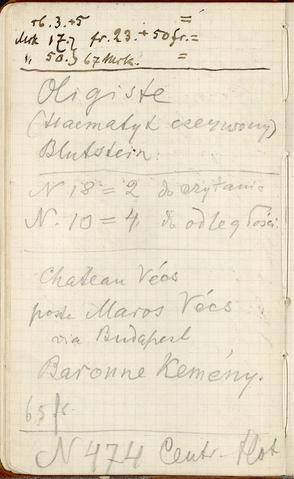 rb. 3.+5 =
Mrk 17.7 fr. 23.+50 fr.=
" 50.} 67 Mrk. =
Oligiste
(Haematyt czerwony)
Blutstein:
N 18 = 2 do czytania
N. 10 = 4, do odległości.
Chateau Vécs
poste Maros Vécs
via Budapest
Baronne Kemény.
65 fr.
N 474 Centr.